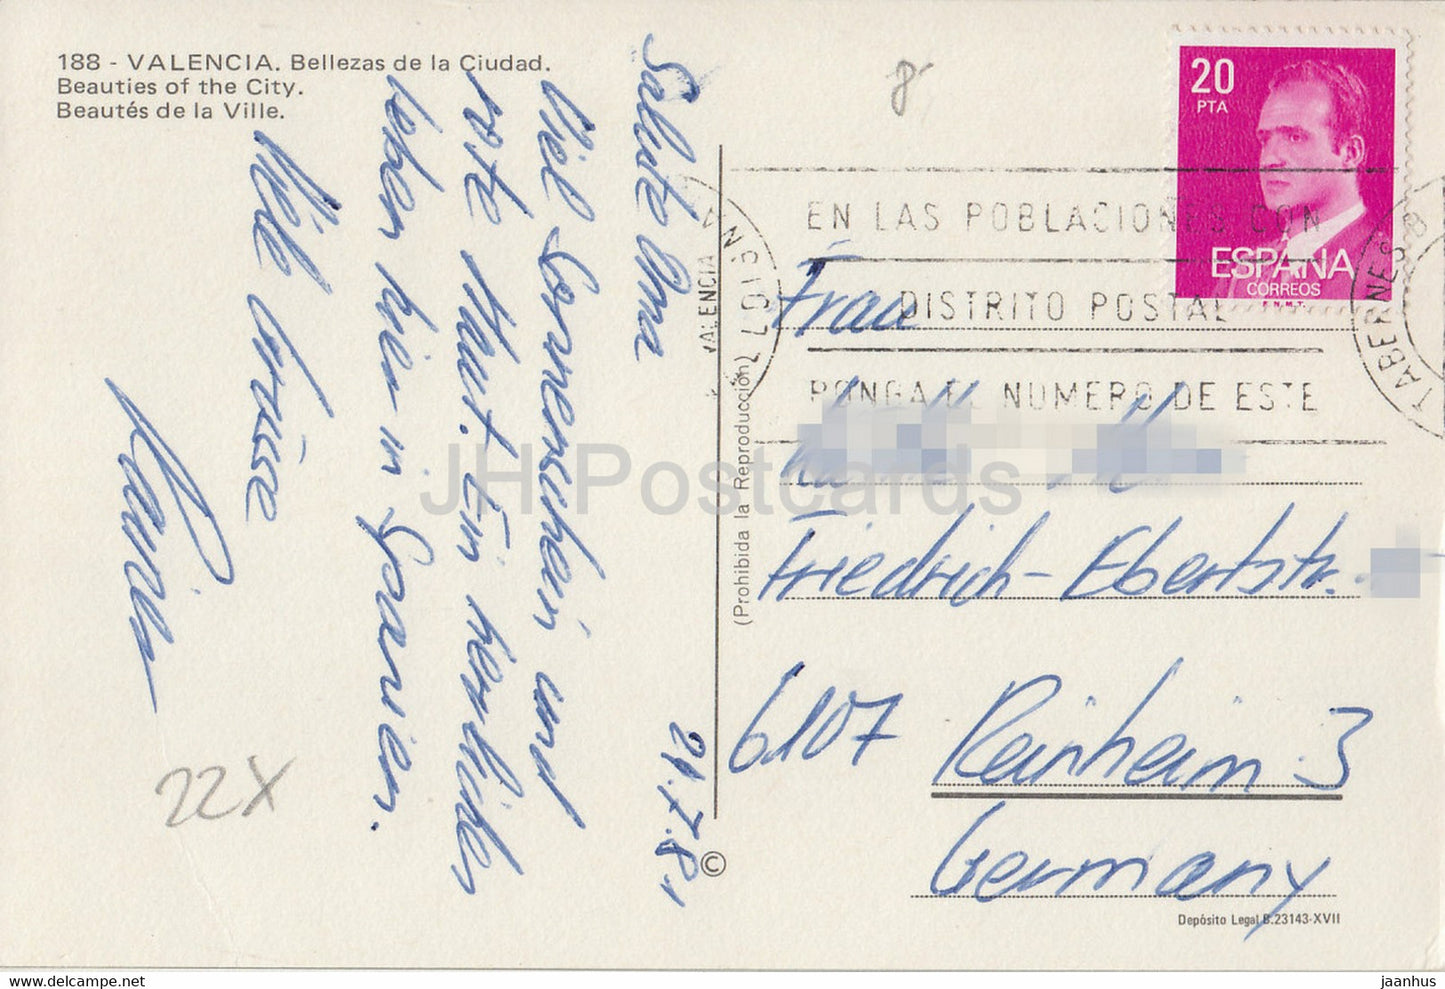 188 - VALENCIA. Bellezas de la Ciudad.
Beauties of the City.
Beautés de la Ville.
24.7.81
Saluste Oma
Viel Sonnenschein und
rote Haut. Ein herrliches
leben hier in Spanien.
Viele Grüsse
Rainer
22X
8
(Prohibida la Reproducción)
©
20
PTA
ESPAÑA
CORREOS
F.N.M.T.
EN LAS POBLACIONES CON
DISTRITO POSTAL
PONGA EL NUMERO DE ESTE
VALENCIA
TABERNES
Frau
Friedrich-Ebertstr.
6107 Reinheim 3
Germany
Depósito Legal B.23143-XVII
JH Postcards
www.delcampe.net
jaanhus